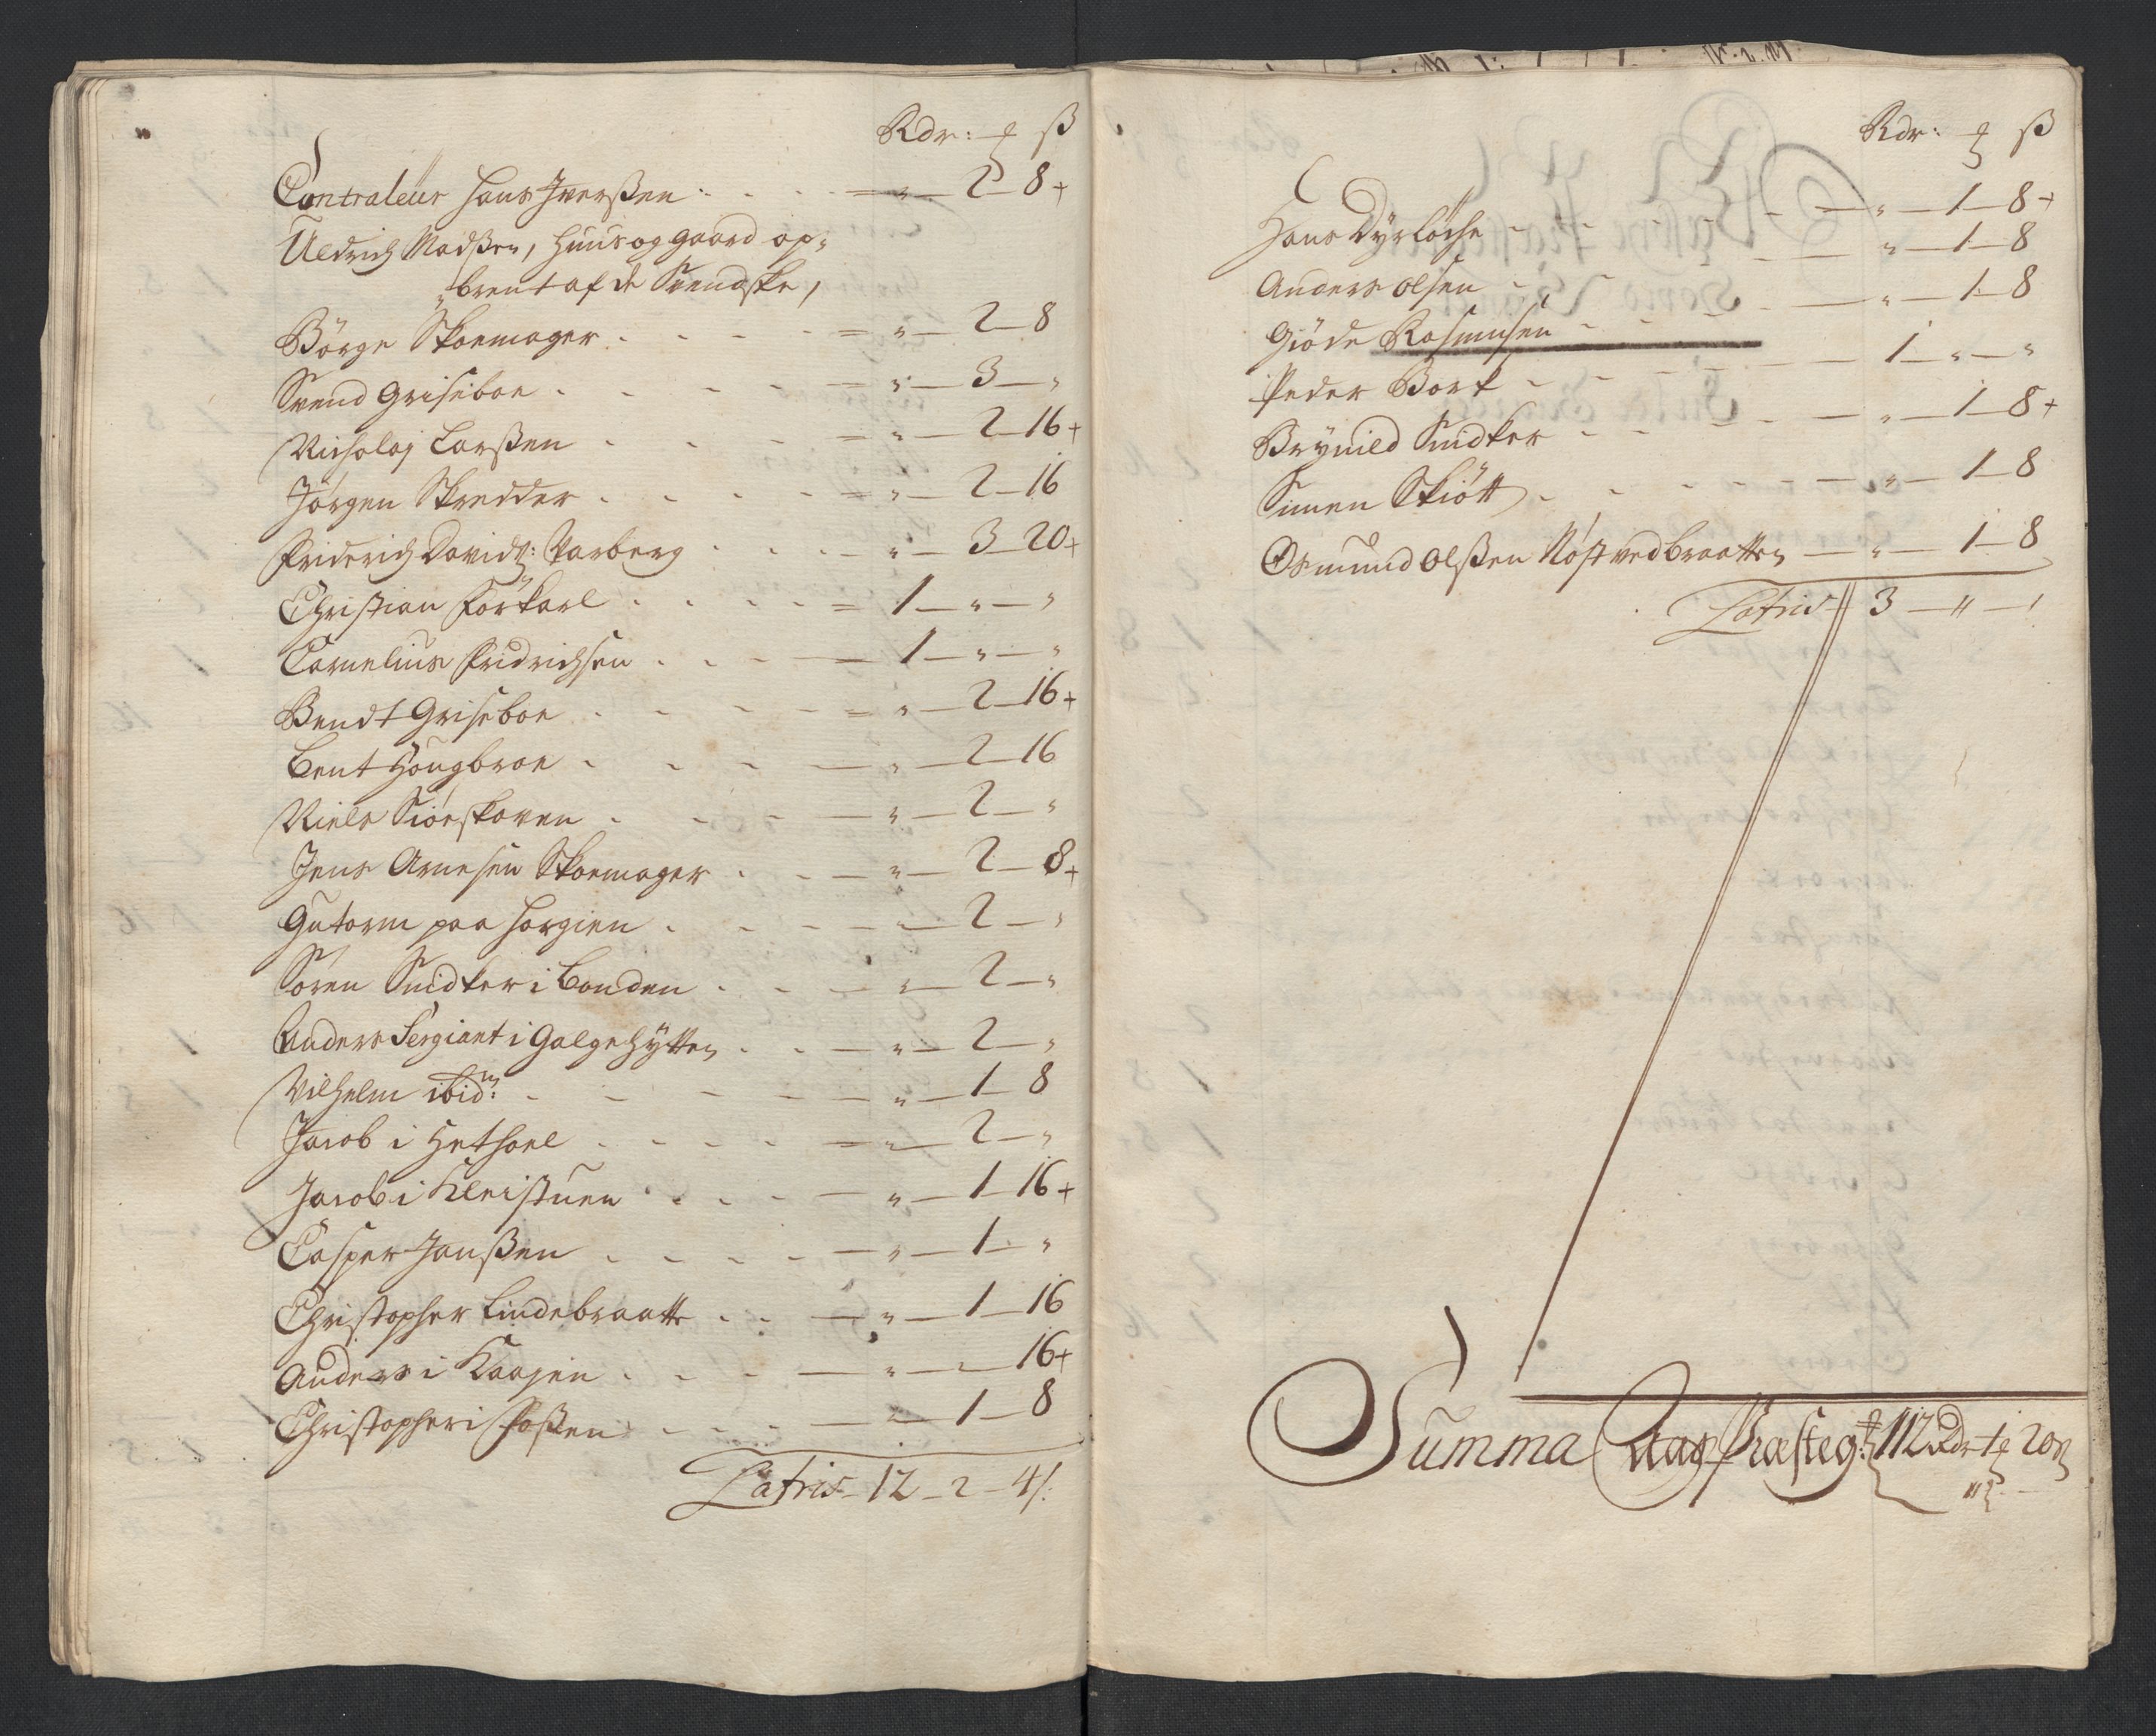 Rdr: ß
Contraleür Hans Jverßen - - - " 2 8+
Uldrich Madßen, Huus og gaard op=
=brent af de Svendske,
Börge Skoemager - - - " 2 8
Svend Griseboe - - - " 3 "
Nicholaj Larßen - - - " 2 16+
Jörgen Skredder - - - " 2 16
Friderich Davidß: Varberg - - - " 3 20+
Christian Förkarl - - - 1 " "
Cornelius Fridrichsen - - - 1 " "
Bendt Griseboe - - - " 2 16+
Bent Hougbroe - - - " 2 16
Niels Siöeskoven - - - " 2 "
Jens Arnesen Skoemager - - - " 2 8+
Gutorm paa Horgien - - - " 2 "
Sören Snidker i Bonden - - - " 2 "
Anders Sergiant i Galgehytten - - - " 2 "
Vilhelm ibidm: - - - " 1 8
Jacob i Hethoel - - - " 2 "
Jacob i Kleistuen - - - " 1 16+
Casper Janßen - - - " 1 "
Christopher Lindebraatte - - - " 1 16
Anders i Kaasen - - - " - 16+
Christopher i Foßen - - - " 1 8
Latris 12 - 2 - 4/:
Rdr: ß
Hans Dyrlöche - - - " 1 8+
Anders Olsen - - - " 1 8
Giöde Rasmusen - - - " 1 8
Peder Bork - - - 1 " "
Brynild Snidker - - - " 1 8+
Simen Skiött - - - " 1 8
Osmund Olßen Nöstvedbraatten - " 1 8
Latris 3 - " - "
Summa Aas Præsteg: 112 Rdr 1 20ß